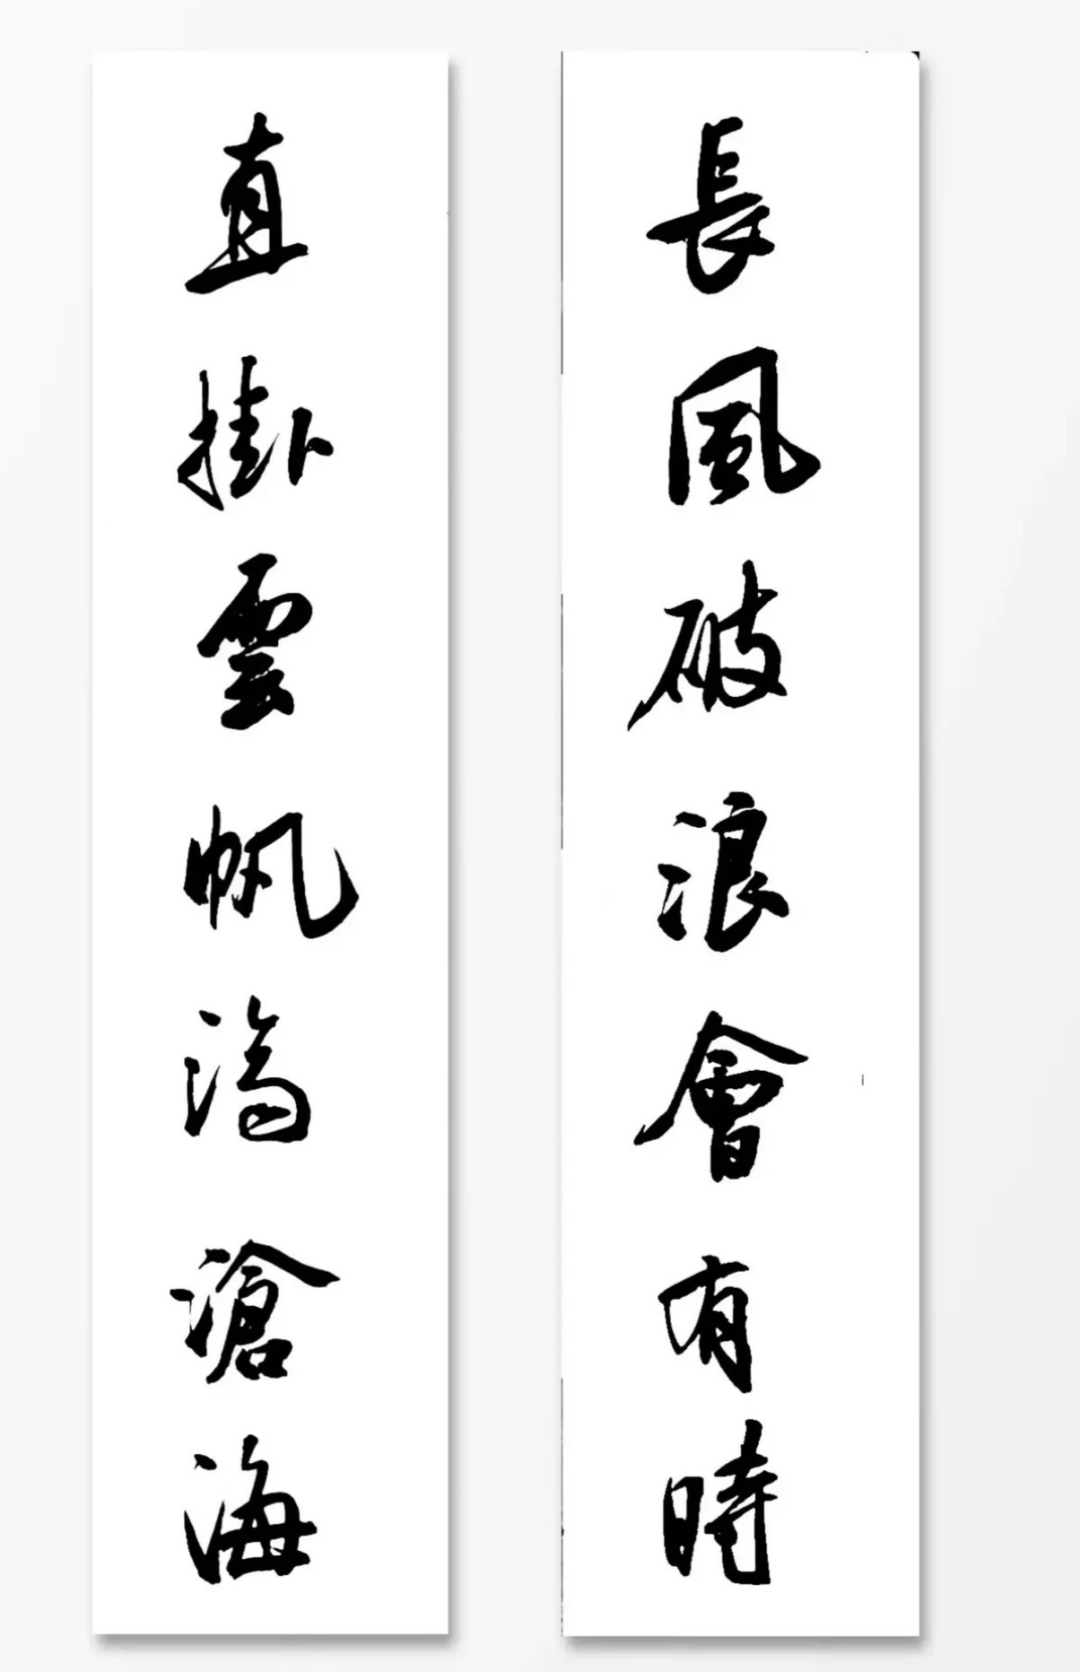 長風破浪會有時
直掛雲帆濟滄海